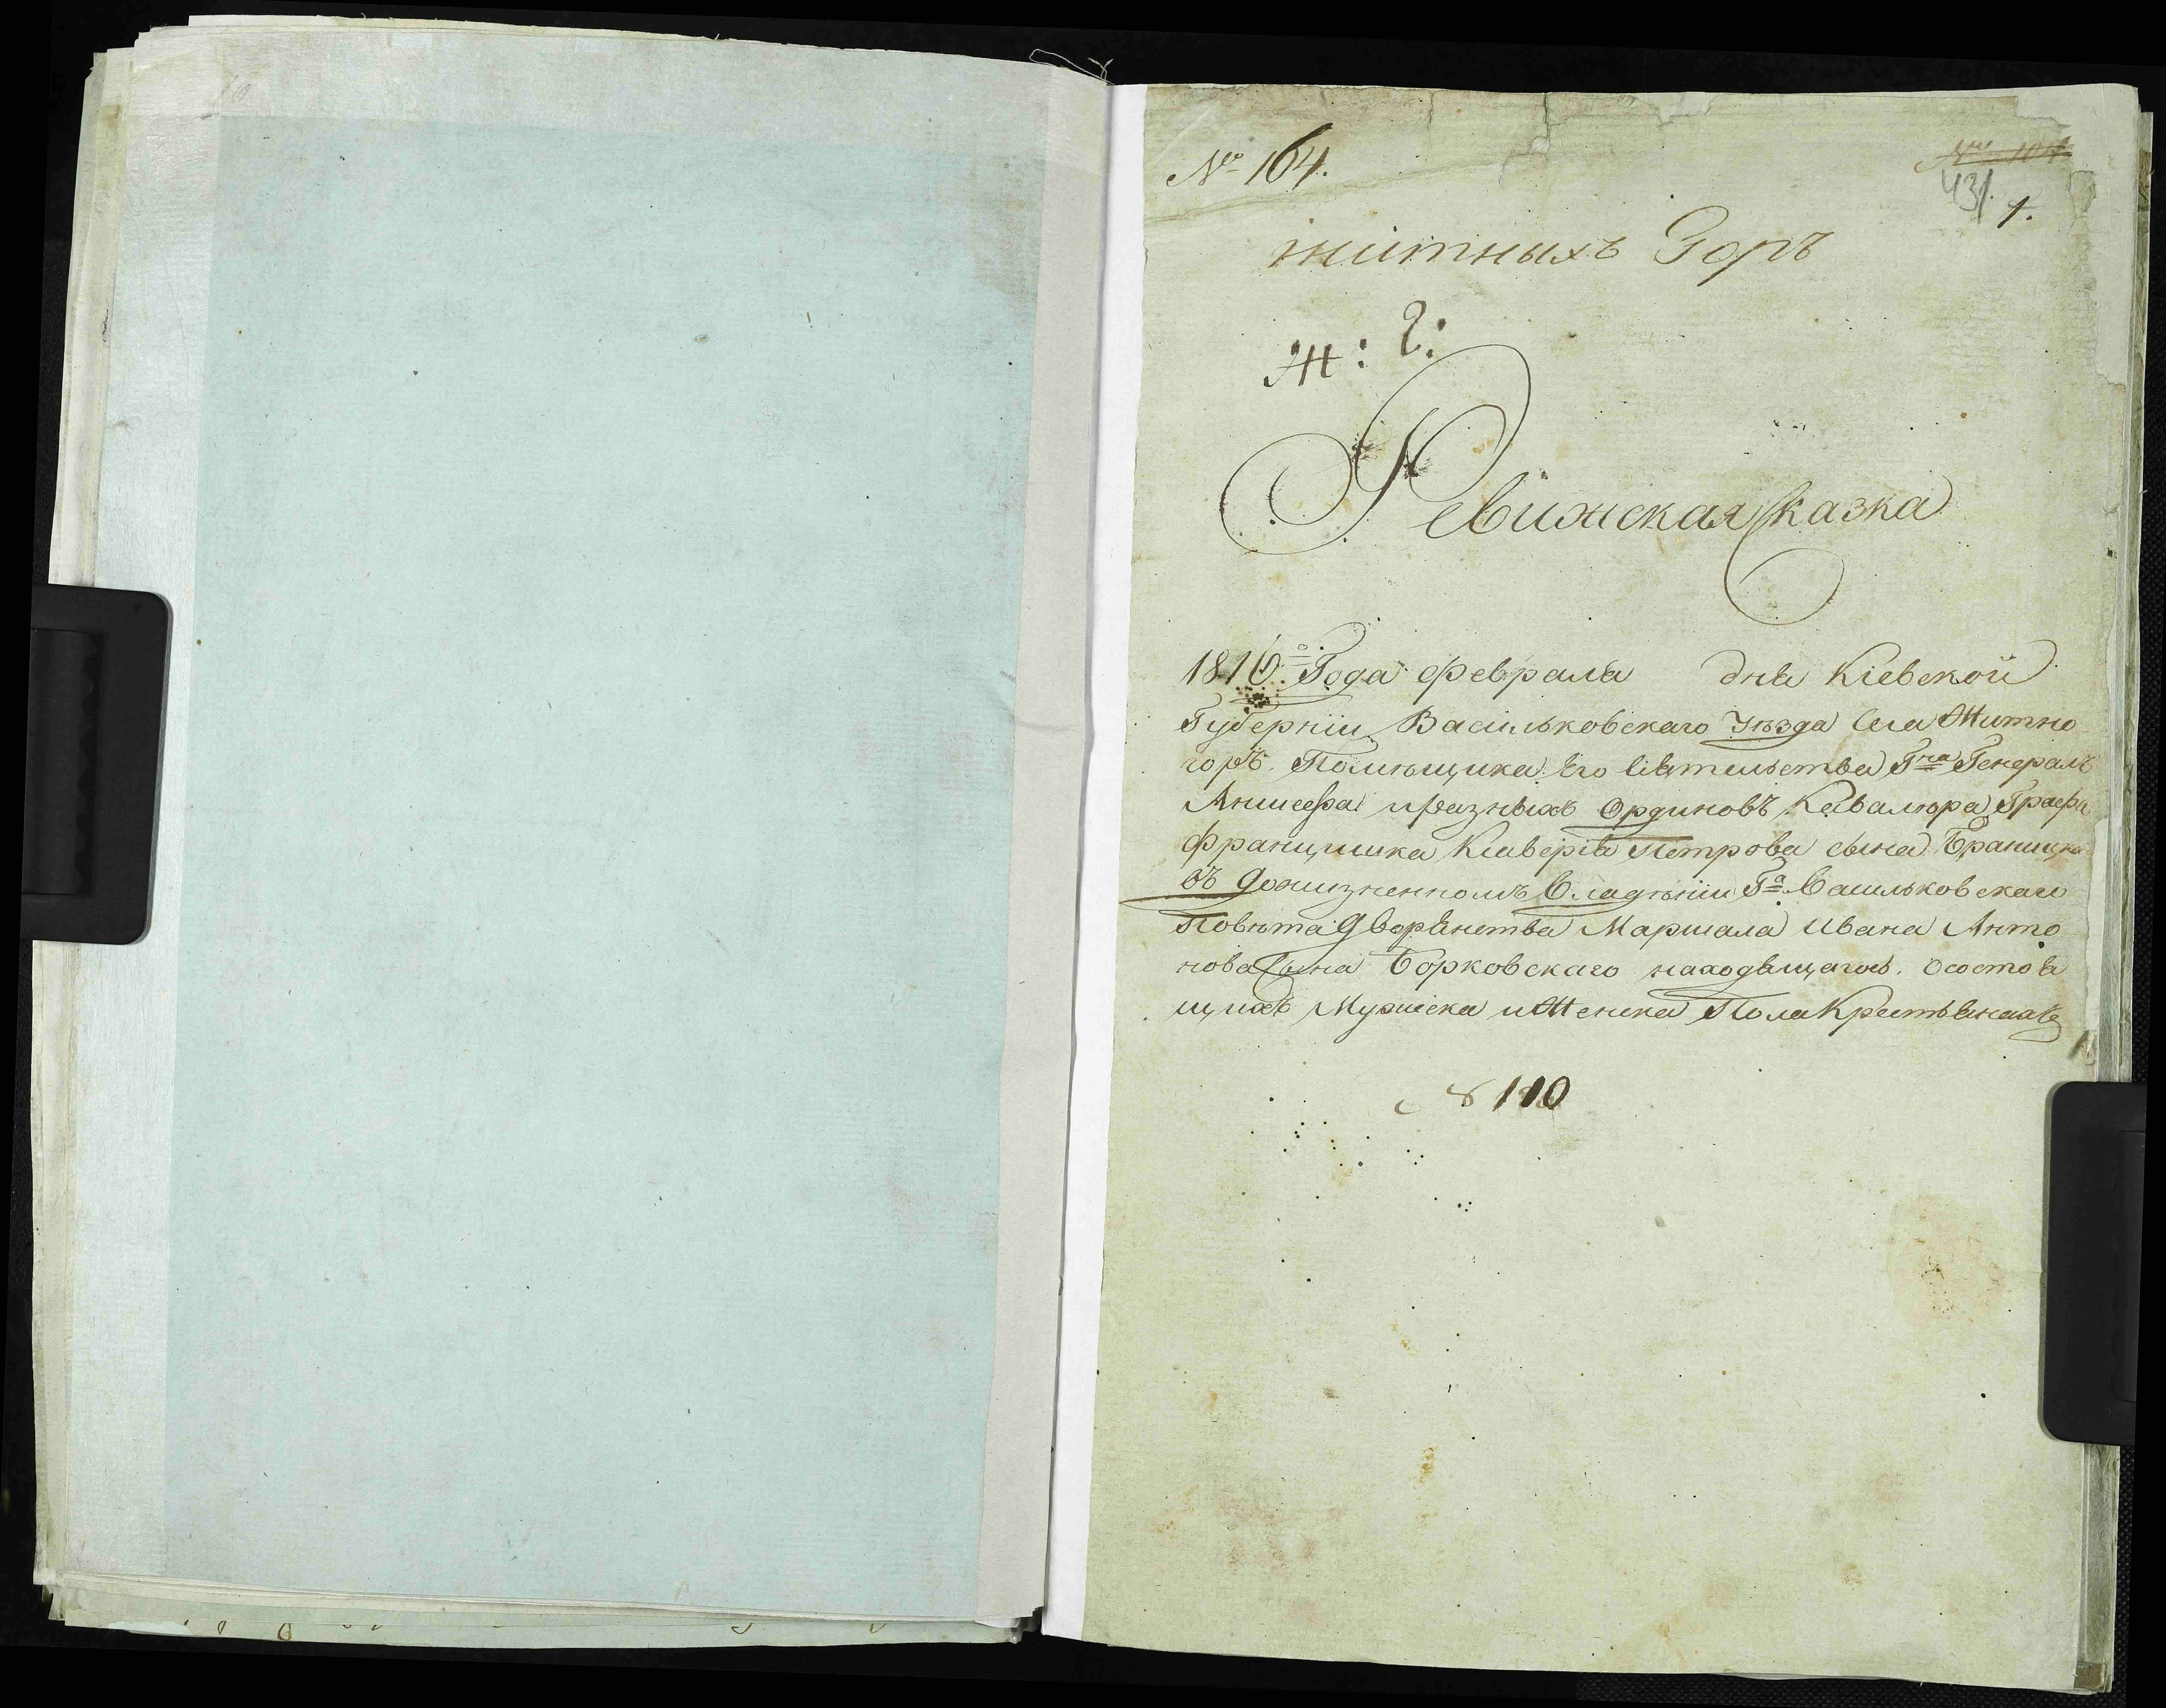 № 164.
431.
1.
житныхъ Горъ
Ж: Г:
Ревижская Сказка
1816го Года февраля дня Кіевской
Губерніи Васильковскаго Уѣзда Села Житно
горъ Помѣщика Его Сіятельства Гна Генералъ
Аншефа и разныхъ Ординовъ Кавалюра Графа
Францишка Ксаверія Петрова сына Браницка
въ Дожизненномъ Владѣніи Га Васильковскаго
Повѣта Дворянства Маршала Ивана Анто
нова Сына Борковскаго находящагось. О состоя
щихъ Мужска и Женска Пола Крестьянахъ
110